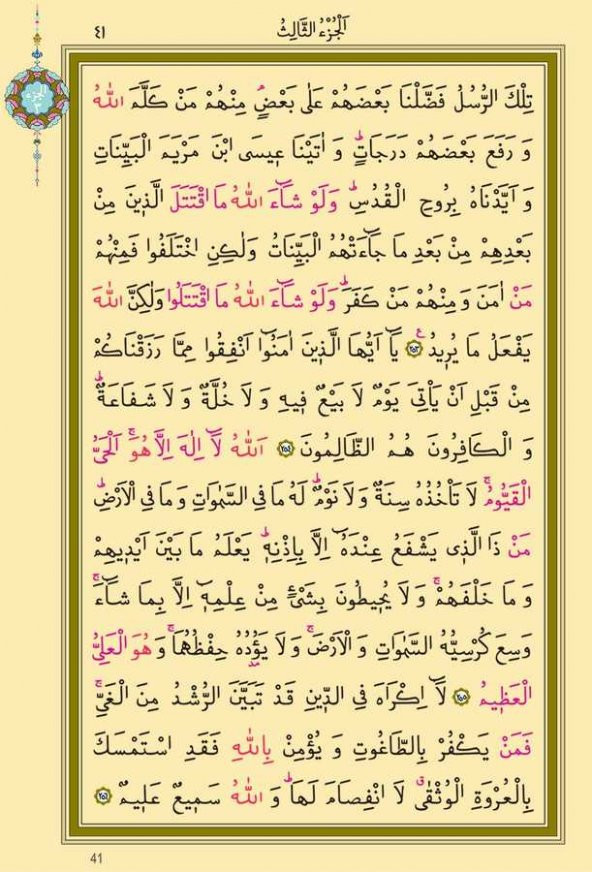 ٤١ اَلْجُزْءُ الثَّالِثُ
اَلْجُزْءُ
٣
تِلْكَ الرُّسُلُ فَضَّلْنَا بَعْضَهُمْ عَلٰى بَعْضٍۢ مِنْهُمْ مَنْ كَلَّمَ اللّٰهُ
وَ رَفَعَ بَعْضَهُمْ دَرَجَاتٍۜ وَ اٰتَيْنَا عٖيسَى ابْنَ مَرْيَمَ الْبَيِّنَاتِ
وَ اَيَّدْنَاهُ بِرُوحِ الْقُدُسِۜ وَلَوْ شَٓاءَ اللّٰهُ مَا اقْتَتَلَ الَّذٖينَ مِنْ
بَعْدِهِمْ مِنْ بَعْدِ مَا جَٓاءَتْهُمُ الْبَيِّنَاتُ وَلٰكِنِ اخْتَلَفُوا فَمِنْهُمْ
مَنْ اٰمَنَ وَ مِنْهُمْ مَنْ كَفَرَۜ وَلَوْ شَٓاءَ اللّٰهُ مَا اقْتَتَلُوا وَلٰكِنَّ اللّٰهَ
يَفْعَلُ مَا يُرٖيدُ ﴿٢٥٣﴾ يَٓا اَيُّهَا الَّذٖينَ اٰمَنُٓوا اَنْفِقُوا مِمَّا رَزَقْنَاكُمْ
مِنْ قَبْلِ اَنْ يَأْتِىَ يَوْمٌ لَا بَيْعٌ فٖيهِ وَ لَا خُلَّةٌ وَ لَا شَفَاعَةٌۜ
وَ الْكَافِرُونَ هُمُ الظَّالِمُونَ ﴿٢٥٤﴾ اَللّٰهُ لَٓا اِلٰهَ اِلَّا هُوَۚ اَلْحَىُّ
الْقَيُّومُۚ لَا تَأْخُذُهُ سِنَةٌ وَ لَا نَوْمٌۜ لَهُ مَا فِى السَّمٰوَاتِ وَ مَا فِى الْاَرْضِۜ
مَنْ ذَا الَّذٖى يَشْفَعُ عِنْدَهُٓ اِلَّا بِاِذْنِهٖۜ يَعْلَمُ مَا بَيْنَ اَيْدٖيهِمْ
وَ مَا خَلْفَهُمْۚ وَ لَا يُحٖيطُونَ بِشَىْءٍ مِنْ عِلْمِهٖٓ اِلَّا بِمَا شَٓاءَۚ
وَسِعَ كُرْسِيُّهُ السَّمٰوَاتِ وَ الْاَرْضَۚ وَ لَا يَؤُدُهُ حِفْظُهُمَاۚ وَ هُوَ الْعَلِىُّ
الْعَظٖيمُ ﴿٢٥٥﴾ لَٓا اِكْرَاهَ فِى الدّٖينِ قَدْ تَبَيَّنَ الرُّشْدُ مِنَ الْغَىِّۚ
فَمَنْ يَكْفُرْ بِالطَّاغُوتِ وَ يُؤْمِنْ بِاللّٰهِ فَقَدِ اسْتَمْسَكَ
بِالْعُرْوَةِ الْوُثْقٰىۗ لَا انْفِصَامَ لَهَاۜ وَ اللّٰهُ سَمٖيعٌ عَلٖيمٌ ﴿٢٥٦﴾
41